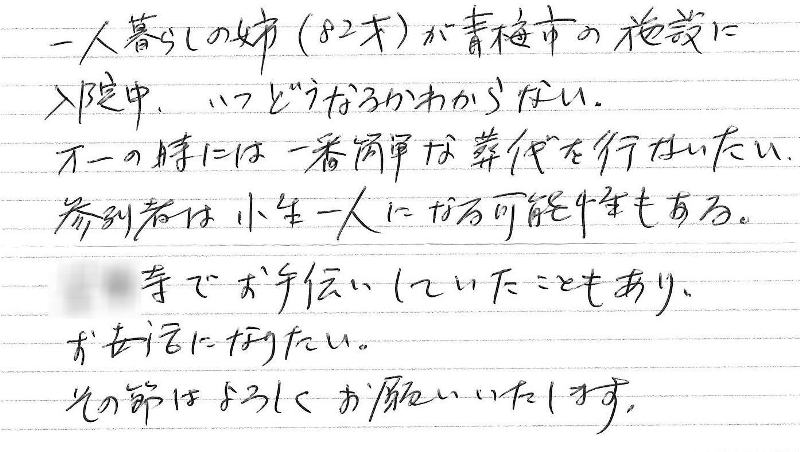 一人暮らしの姉(82才)が青梅市の施設に
入院中、いつどうなるかわからない。
万一の時には一番簡単な葬代を行ないたい。
参列者は小生一人になる可能性もある。
寺でお手伝いしていたこともあり、
お世話になりたい。
その節はよろしくお願いいたします。